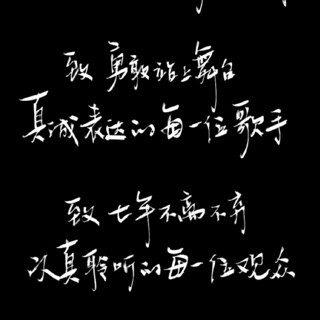 致 勇敢站上舞台
真诚表达的每一位歌手
致 七年不离不弃
认真聆听的每一位观众